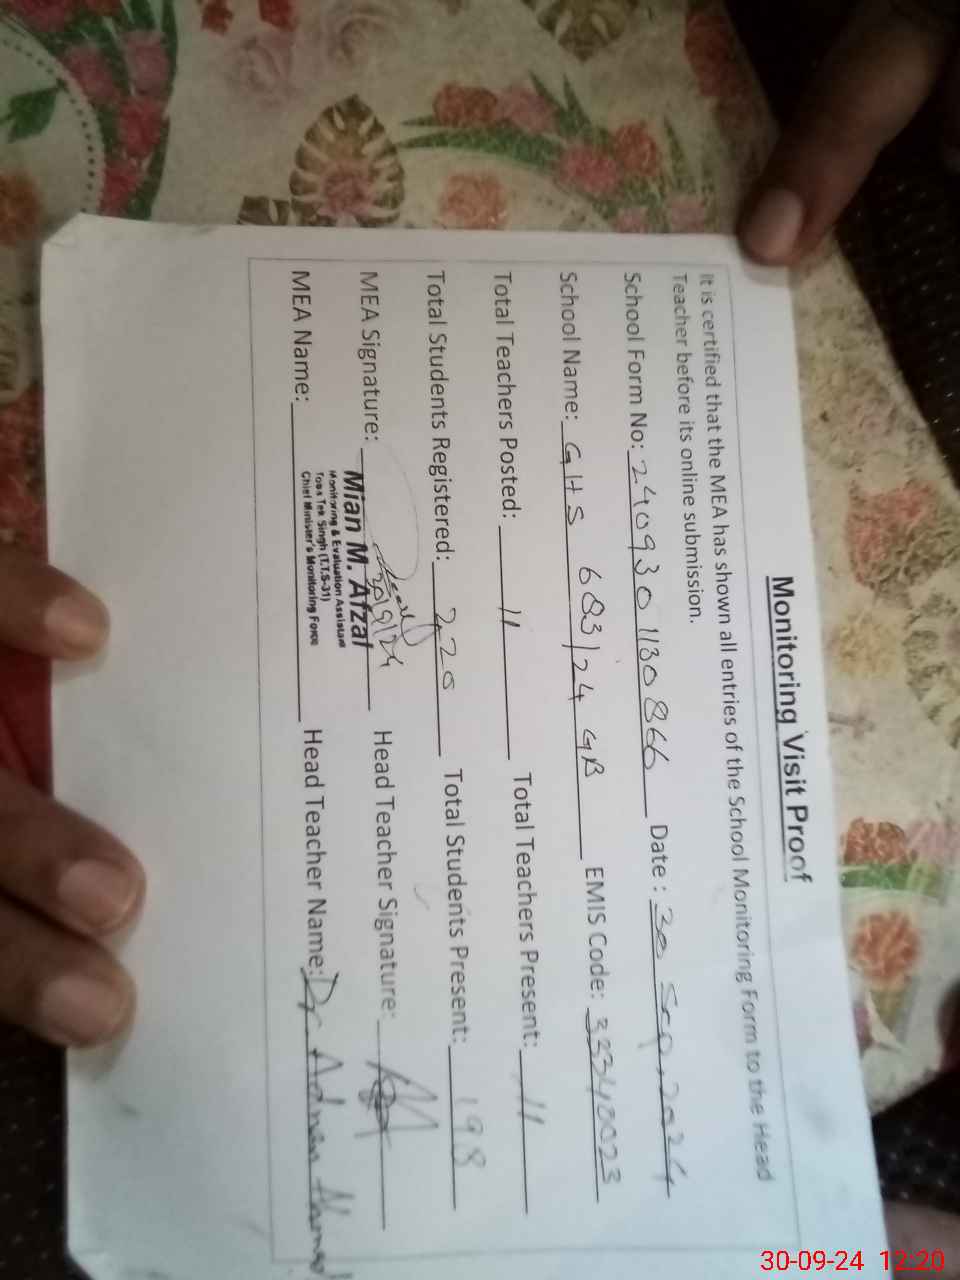 Monitoring Visit Proof
It is certified that the MEA has shown all entries of the School Monitoring Form to the Head
Teacher before its online submission.
School Form No: 240930 1130866 Date : 30 Sep, 2024
School Name: GHS 683/24 GB EMIS Code: 33340023
Total Teachers Posted: 11 Total Teachers Present: 11
Total Students Registered: 220 Total Students Present: 198
MEA Signature: 30/9/24 Head Teacher Signature:
Mian M. Afzal
Monitoring & Evaluation Assistant
Toba Tek Singh (T.T.S-31)
Chief Minister's Monitoring Force
MEA Name: Head Teacher Name: Dr. Adnan Ahmad
30-09-24 12:20